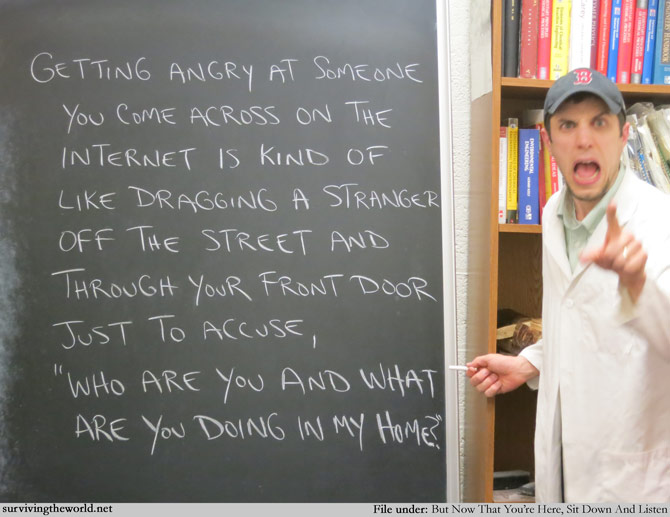 GETTING ANGRY AT SOMEONE
YOU COME ACROSS ON THE
INTERNET IS KIND OF
LIKE DRAGGING A STRANGER
OFF THE STREET AND
THROUGH YOUR FRONT DOOR
JUST TO ACCUSE,
"WHO ARE YOU AND WHAT
ARE YOU DOING IN MY HOME?"
B
ENVIRONMENTAL
ENGINEERING
survivingtheworld.net
File under: But Now That You're Here, Sit Down And Listen